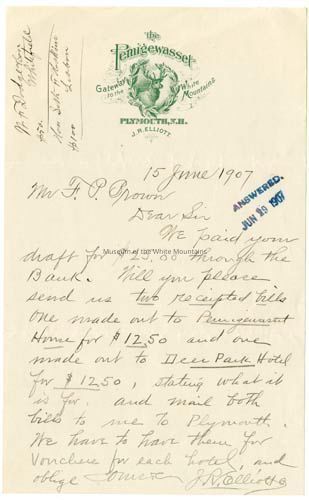 the
Pemigewasset
Gateway to the White Mountains
PLYMOUTH, N.H.
J. R. ELLIOTT.
15 June 1907
ANSWERED.
JUN 19 1907
Mr F. P. Brown
Dear Sir
We paid your
draft for $25.00 through the
Museum of the White Mountains
Bank. Will you please
send us two receipted bills
one made out to Pemigewasset
House for $12.50 and one
made out to Deer Park Hotel
for $12.50, stating what it
is for. and mail both
bills to me to Plymouth.
We have to have them for
Vouchers for each hotel, and
oblige J. R. Elliott